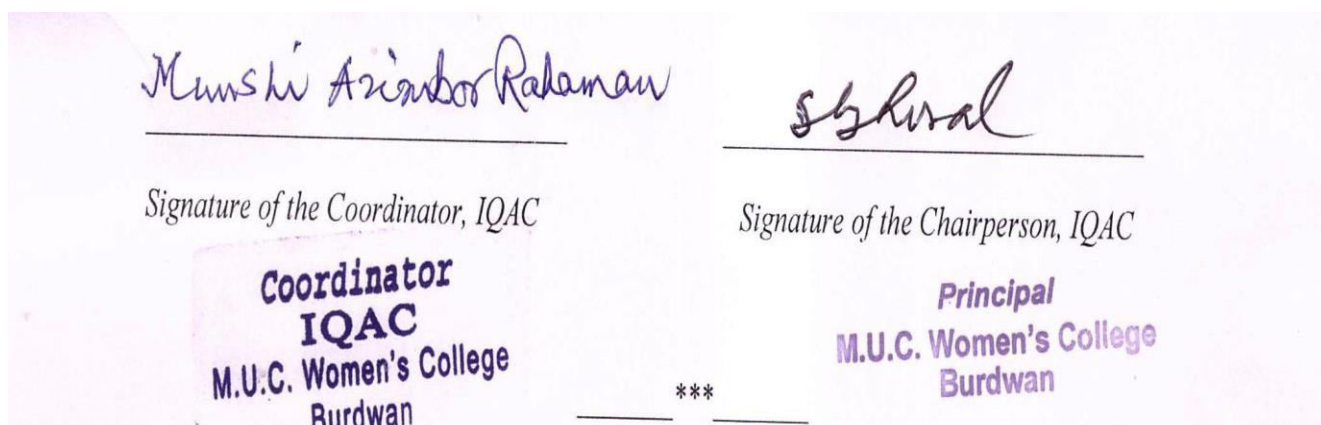 Munshi Azizabor Rahaman
Signature of the Coordinator, IQAC
Coordinator
IQAC
M.U.C. Women's College
Burdwan
Signature of the Chairperson, IQAC
Principal
M.U.C. Women's College
Burdwan
***